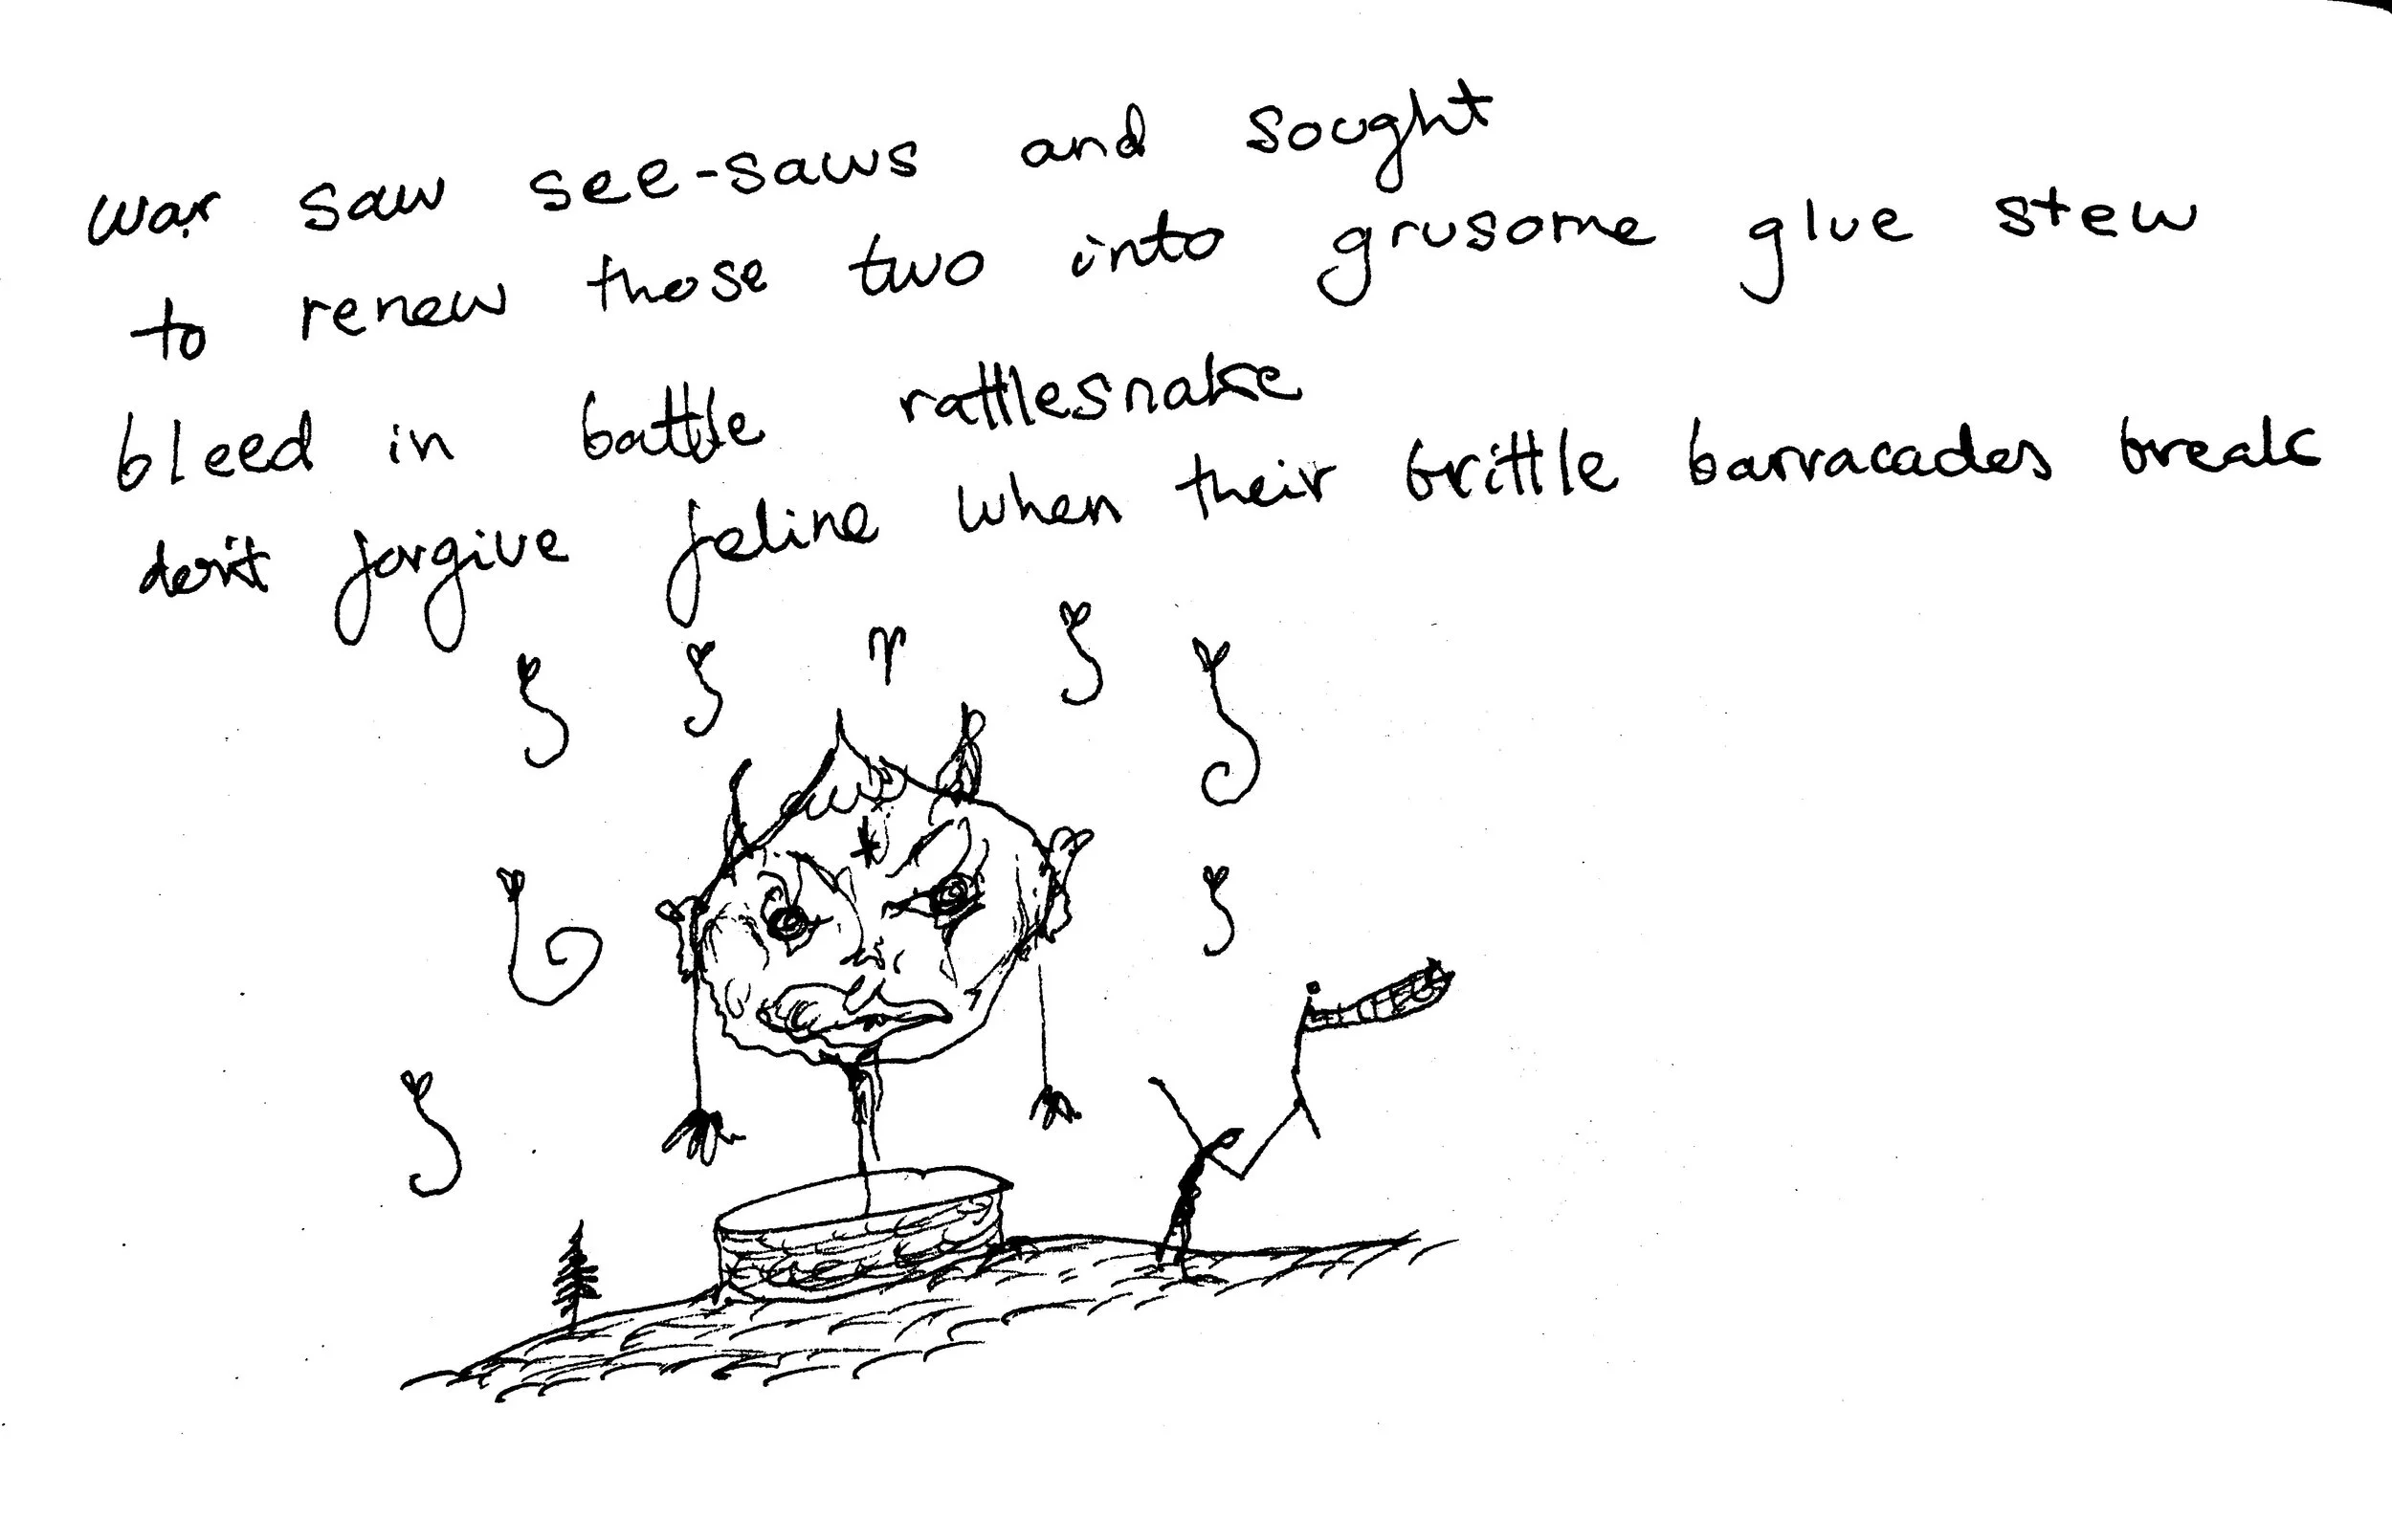 war saw see-saws and sought
to renew those two into grusome glue stew
bleed in battle rattlesnake
don't forgive feline when their brittle barracades break